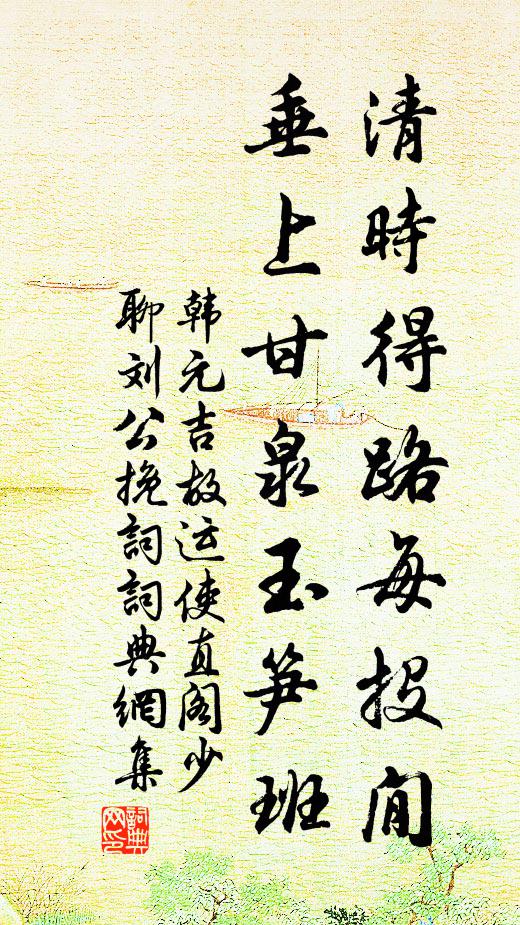 清時得路每投閒
垂上甘泉玉笋班
韩元吉故运使直阁少
聊刘公挽詞詞典網集
詞典网印